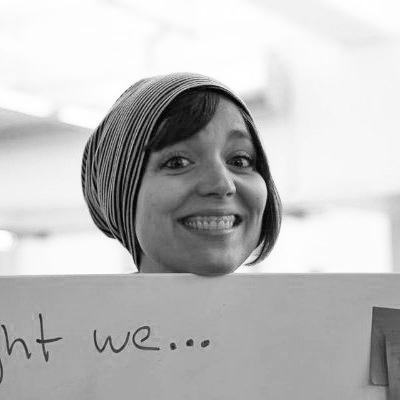 ght we...